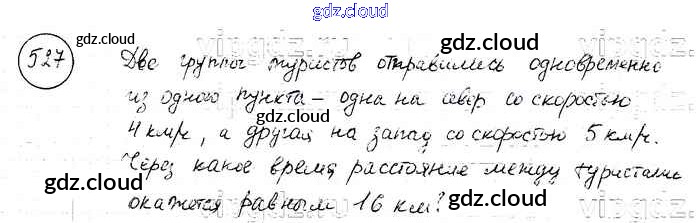 gdz.cloud
527
gdz.cloud
gdz.cloud
Две группы туристов отправились одновременно
из одного пункта – одна на север со скоростью
gdz.cloud
gdz.cloud
4 км/ч, а другая на запад со скоростью 5 км/ч.
Через какое время расстояние между туристами
gdz.cloud
gdz.cloud
окажется равным 16 км?